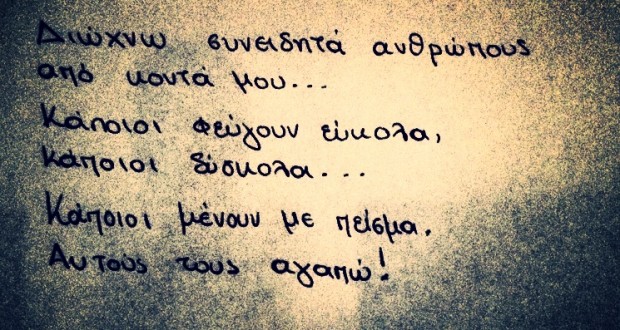 Διώχνω συνειδητά ανθρώπους
από κοντά μου...
Κάποιοι φεύγουν εύκολα,
κάποιοι δύσκολα...
Κάποιοι μένουν με πείσμα.
Αυτούς τους αγαπώ!